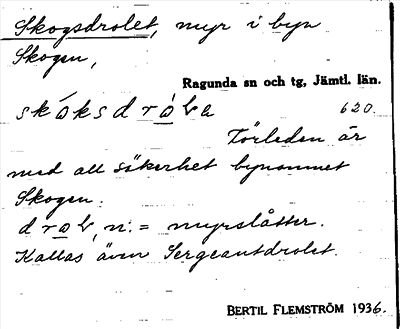 Skogsdrolet, myr i byn
Skogen,
Ragunda sn och tg, Jämtl. län.
skáksdròla 620.
Förleden är
med all säkerhet bynamnet
Skogen.
drol, n. = myrslåtter.
Kallas även Sergeantdrolet.
BERTIL FLEMSTRÖM 1936.